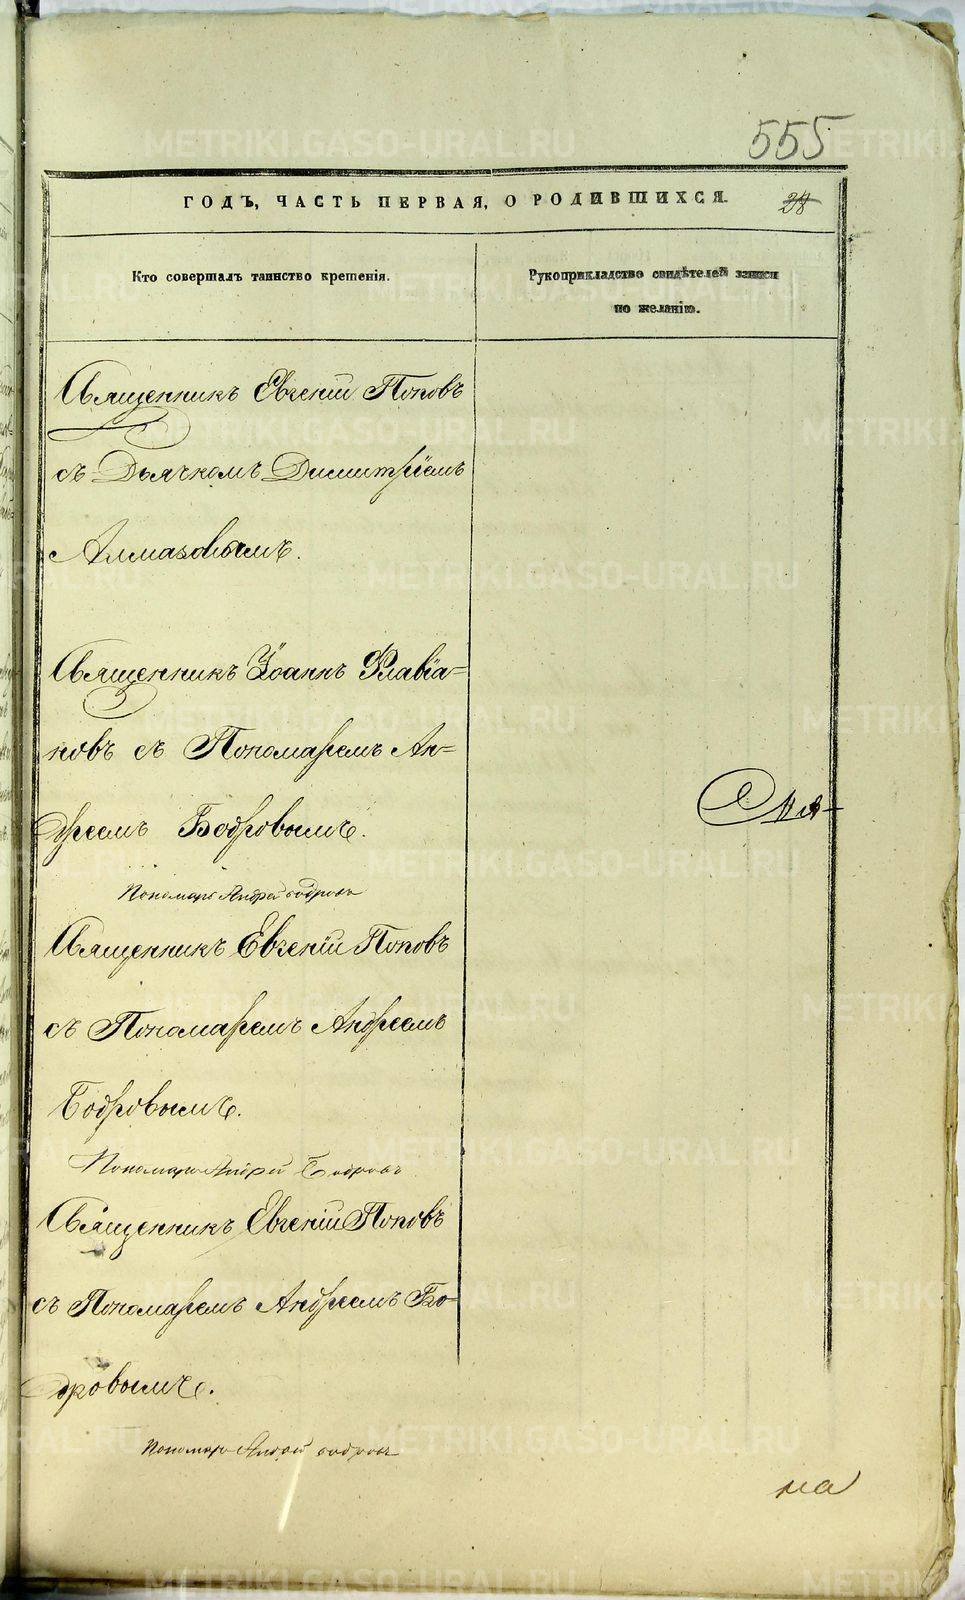 555
ГОДЪ, ЧАСТЬ ПЕРВАЯ, О РОДИВШИХСЯ.
28
Кто совершалъ таинство крещенія.
Рукоприкладство свидѣтелей записи
по желанію.
Священникъ Евгеній Поповъ
съ Дьячкомъ Димитріемъ
Алмазовымъ.
Священникъ Іоаннъ Флавіа=
новъ съ Пономаремъ Ан=
дреемъ Бодровымъ.
Пономарь Андрей Бодровъ
Священникъ Евгеній Поповъ
съ Пономаремъ Андреемъ
Бодровымъ.
Пономарь Андрей Бодровъ
Священникъ Евгеній Поповъ
съ Пономаремъ Андреемъ Бо-
дровымъ.
Пономарь Андрей Бодровъ
на
METRIKI.GASO-URAL.RU